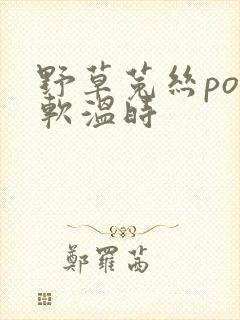 野草菟絲po
軟溫時
鄭羅茜